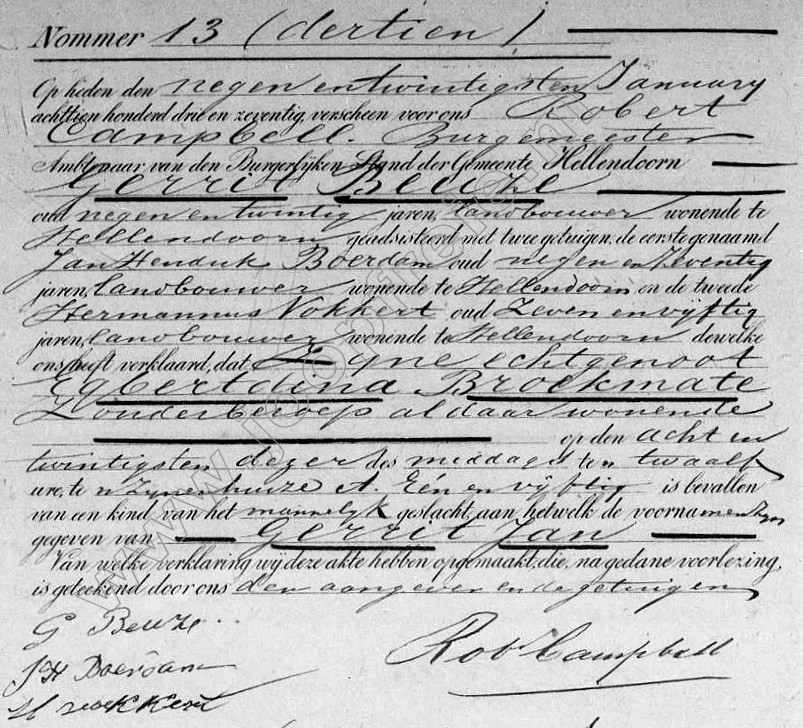 Nommer 13 (dertien)
Op heden den negen en twintigsten January
achttien honderd drie en zeventig, verscheen voor ons Robert
Campbell. Burgemeester
Ambtenaar van den Burgerlijken Stand der Gemeente Hellendoorn
Gerrit Beuze
oud negen en twintig jaren, landbouwer wonende te
Hellendoorn geadsisteerd met twee getuigen, de eerste genaamd
Jan Hendrik Boerdam oud negen en zeventig
jaren, landbouwer wonende te Hellendoorn en de tweede
Hermannus Nokkert oud Zeven en vijftig
jaren, landbouwer wonende te Hellendoorn dewelke
ons heeft verklaard, dat Zyne echtgenoot
Egbertdina Broekmate
Zonder beroep aldaar wonende
op den acht en
twintigsten dezer des middags ten twaalf
ure, te zynenhuize A. Eén en vyftig is bevallen
van een kind van het mannelyk geslacht, aan hetwelk de voornamen zyn
gegeven van Gerrit Jan
Van welke verklaring wij deze akte hebben opgemaakt, die, na gedane voorlezing,
is geteekend door ons den aangever en de getuigen
G Beuze
JH Boerdam
Rob Campbell
H Nokkert